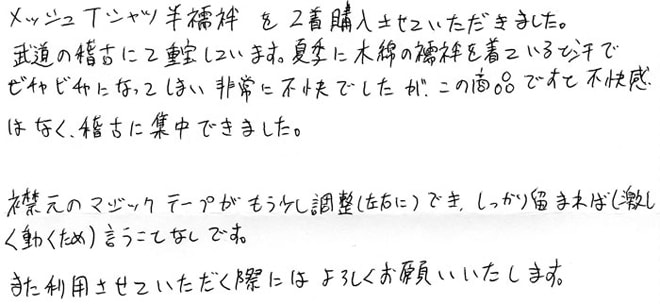 メッシュTシャツ半襦袢を2着購入させていただきました。
武道の稽古にて重宝しています。夏季に木綿の襦袢を着ていると汗で
ビチャビチャになってしまい非常に不快でしたが、この商品ですと不快感
はなく、稽古に集中できました。
襟元のマジックテープがもう少し調整(左右に)でき、しっかり留まれば(激し
く動くため)言うことなしです。
また利用させていただく際にはよろしくお願いいたします。